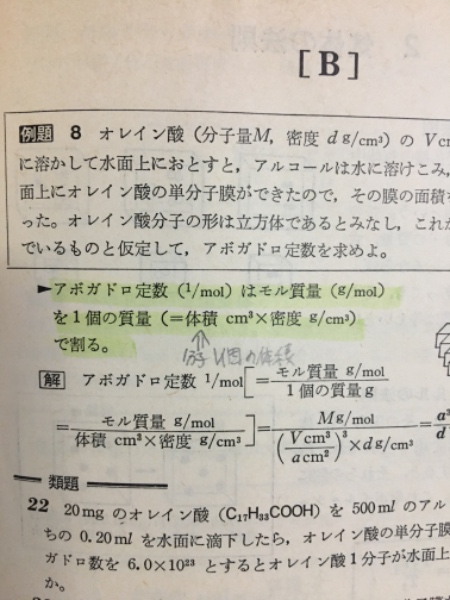 [B]
例題 8 オレイン酸（分子量M，密度 d g/cm³）の V cm
に溶かして水面上におとすと，アルコールは水に溶けこみ，
面上にオレイン酸の単分子膜ができたので，その膜の面積
った。オレイン酸分子の形は立方体であるとみなし，これが
でいるものと仮定して，アボガドロ定数を求めよ。
►アボガドロ定数（1/mol）はモル質量（g/mol）
を1個の質量（=体積 cm³×密度 g/cm³）
で割る。
分子1個の体積
解 アボガドロ定数 1/mol[=モル質量 g/mol / 1個の質量 g
=モル質量 g/mol / 体積 cm³×密度 g/cm³]=M g/mol / (V cm³ / a cm²)³×d g/cm³=a³ / d
類題
22 20mg のオレイン酸（C₁₇H₃₃COOH）を 500ml のアル
ちの 0.20ml を水面に滴下したら，オレイン酸の単分子膜
ガドロ数を 6.0×10²³ とするとオレイン酸1分子が水面上
か。